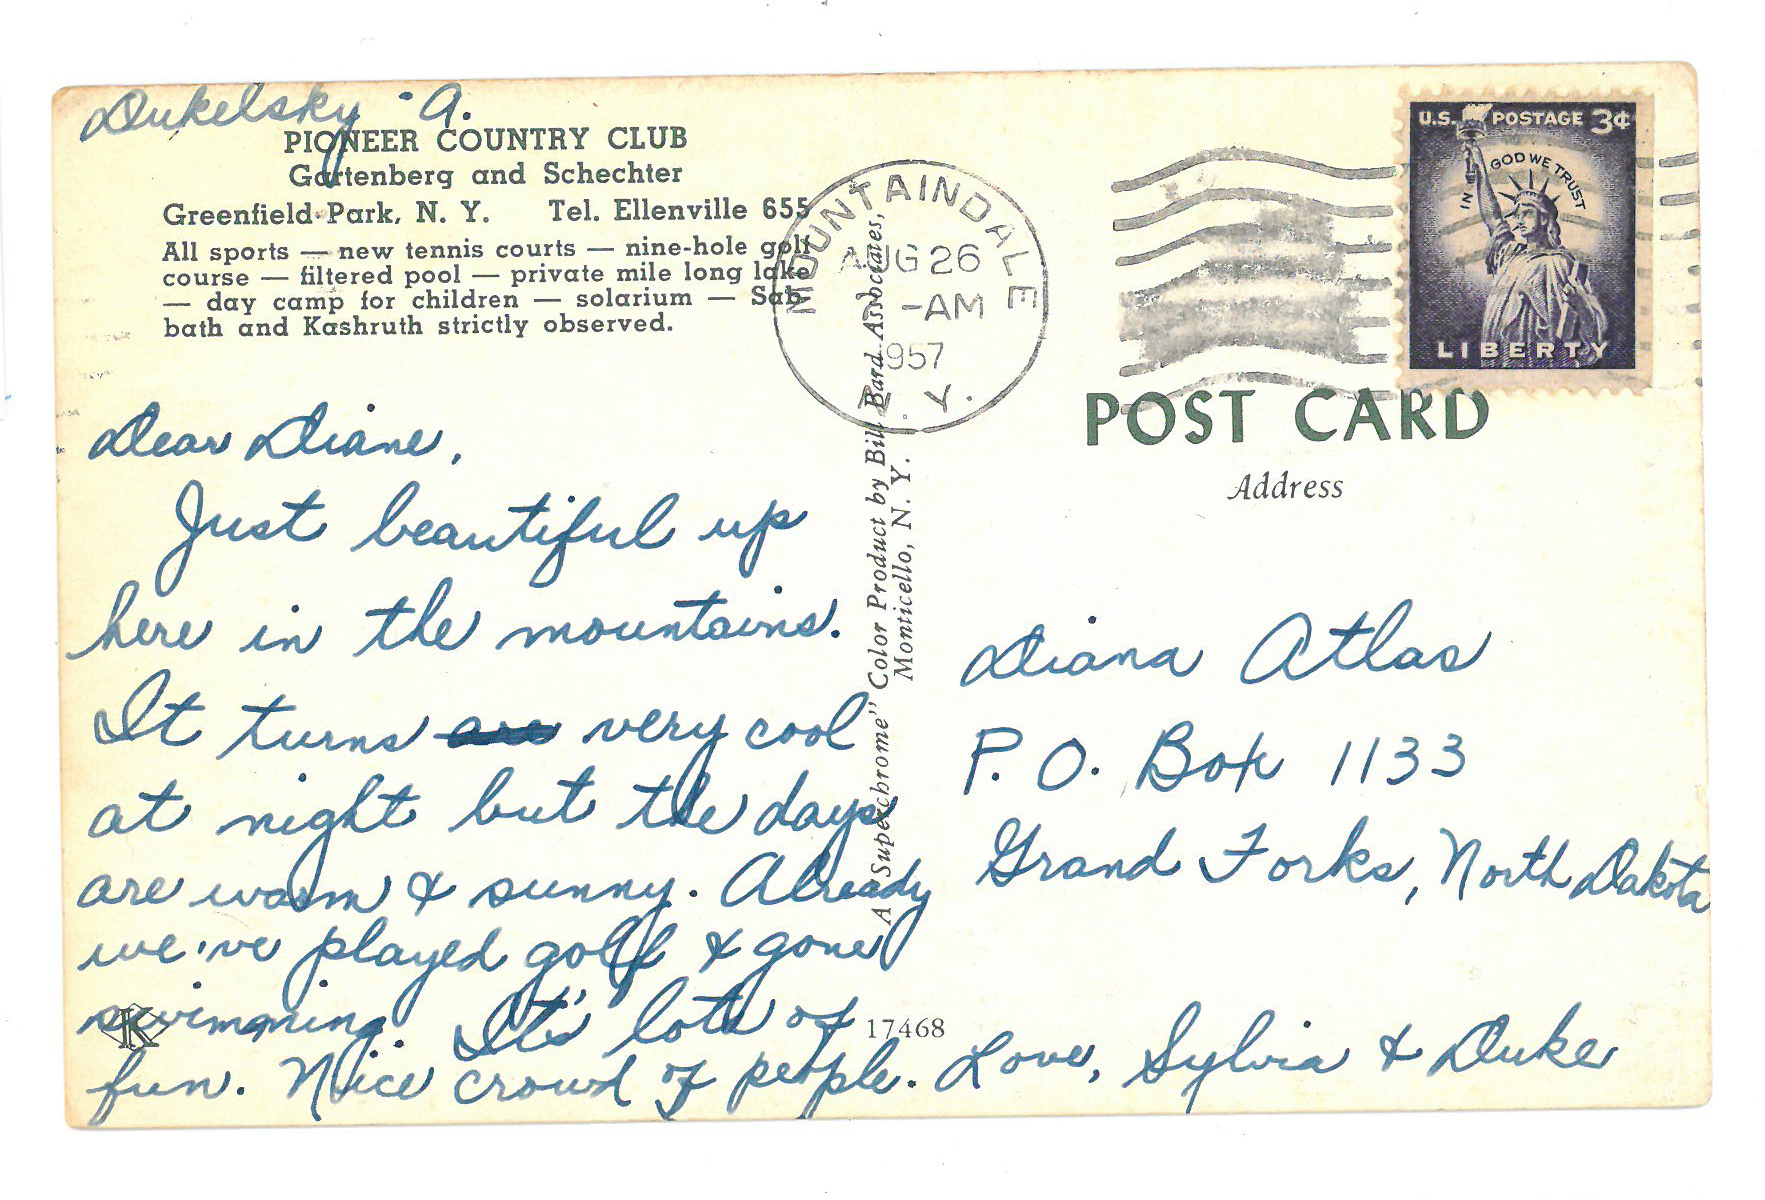 Dukelsky - A.
PIONEER COUNTRY CLUB
Gartenberg and Schechter
Greenfield Park, N. Y. Tel. Ellenville 655
All sports — new tennis courts — nine-hole golf
course — filtered pool — private mile long lake
— day camp for children — solarium — Sab-
bath and Kashruth strictly observed.
Dear Diane,
Just beautiful up
here in the mountains.
It turns are very cool
at night but the days
are warm & sunny. Already
we've played golf & gone
swimming It's lots of
fun. Nice crowd of people. Love, Sylvia & Duke
K
17468
A "Superchrome" Color Product by Bill Bard Associates,
Monticello, N. Y.
MOUNTAINDALE
AUG 26
-AM
1957
N. Y.
U.S. POSTAGE 3¢
IN GOD WE TRUST
LIBERTY
POST CARD
Address
Diana Atlas
P. O. Box 1133
Grand Forks, North Dakota